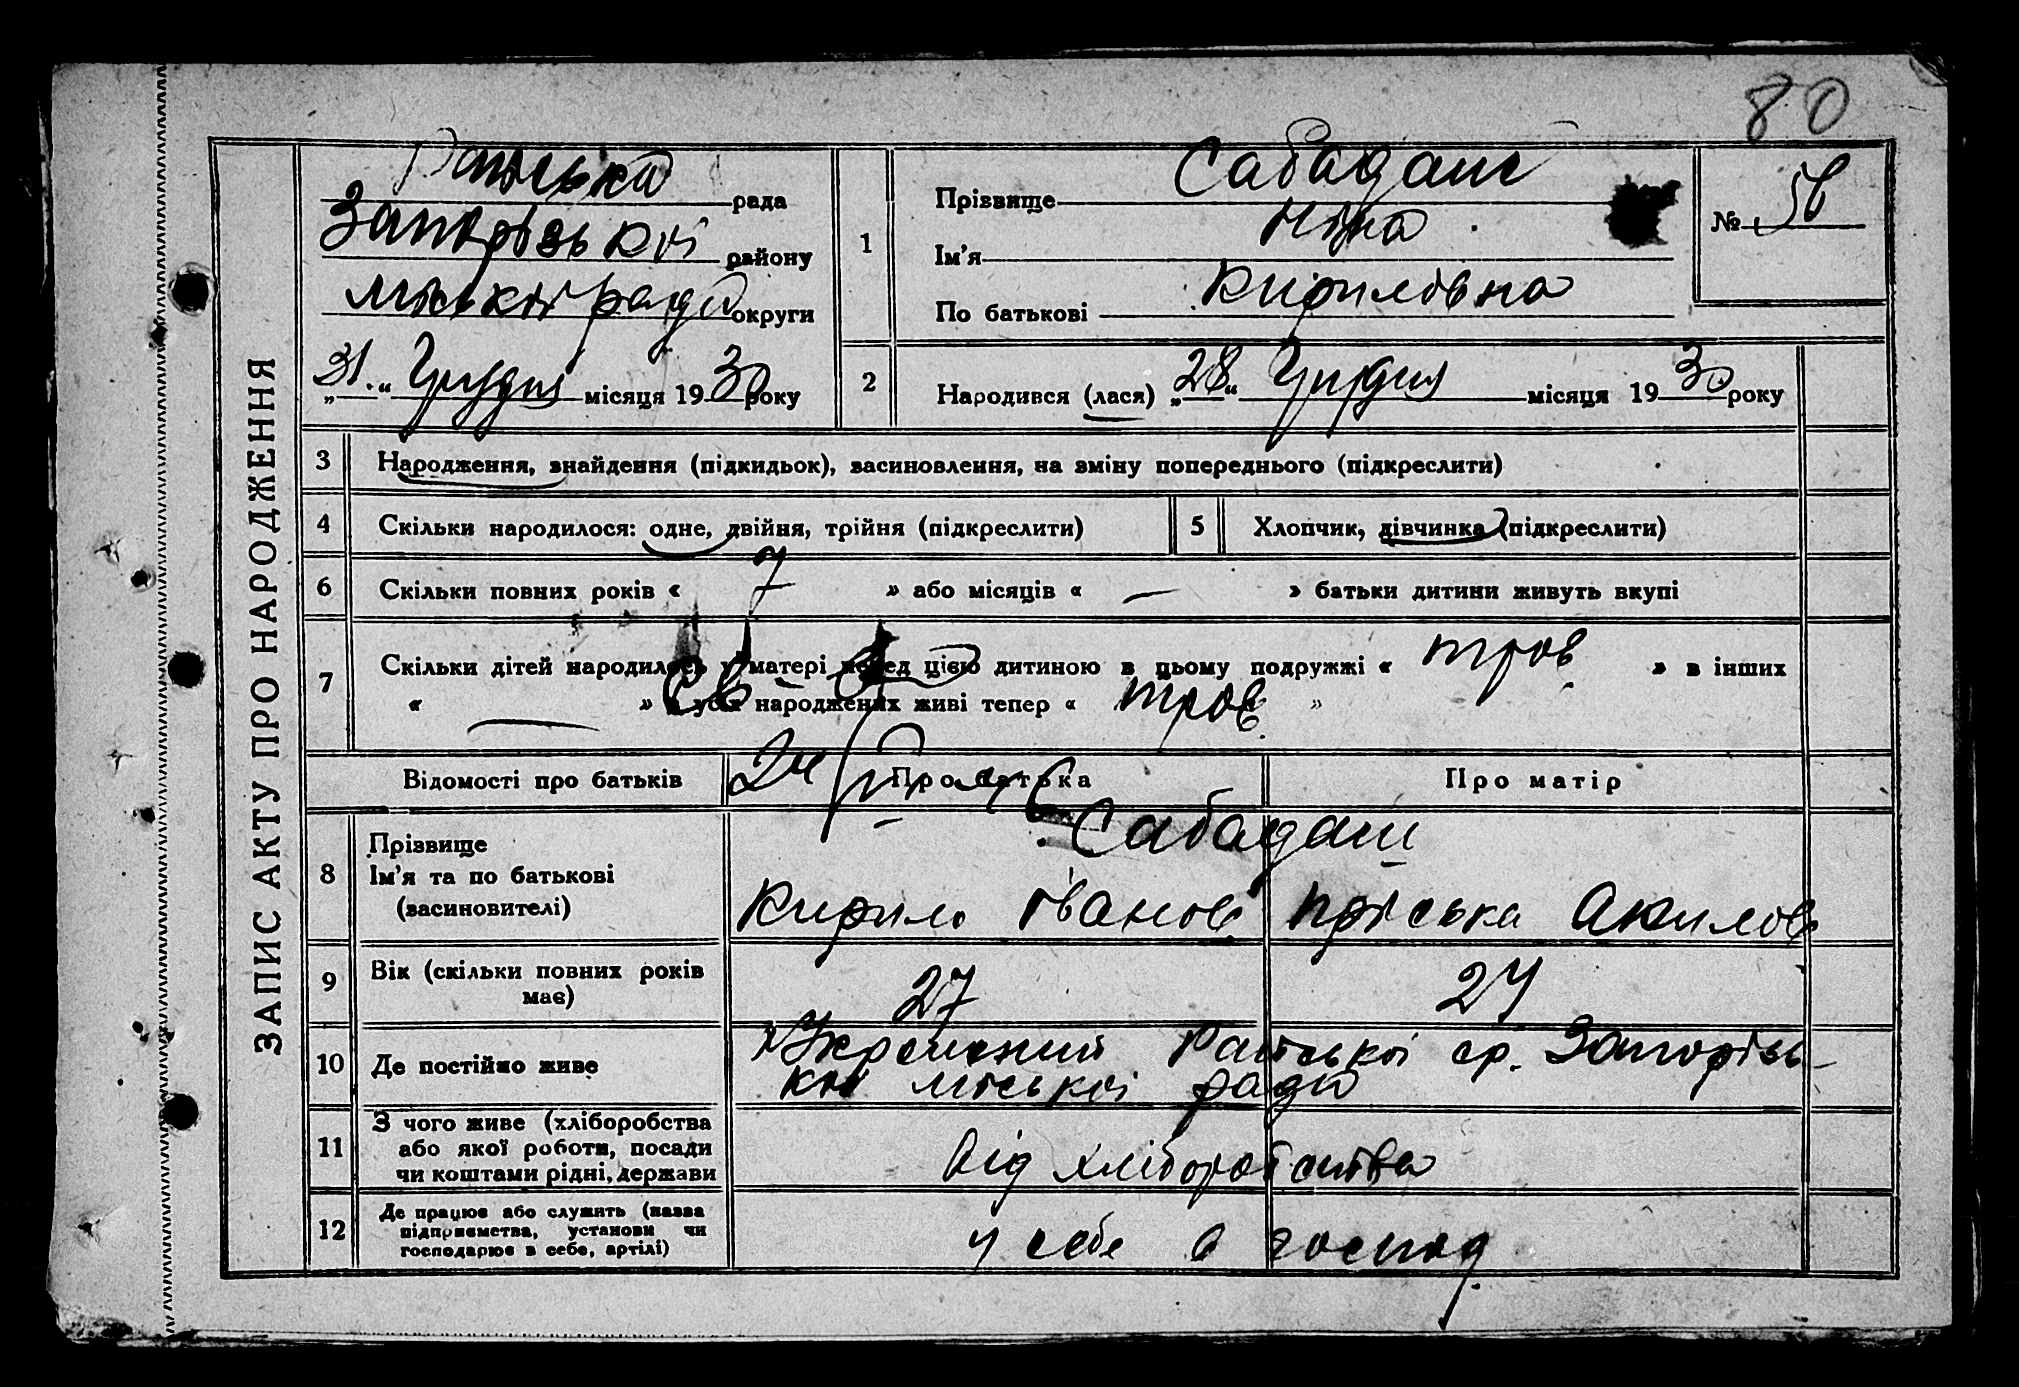 80
ЗАПИС АКТУ ПРО НАРОДЖЕННЯ
рада
Запорізької району
міської ради округи
„31.“ Грудня місяця 1930 року
1
Прізвище Сабадаш
Ім'я Ніна
По батькові Кирилівна
№ 56
2
Народився (лася) „28“ Грудня місяця 1930 року
3 Народження, знайдення (підкидьок), засиновлення, на зміну попереднього (підкреслити)
4 Скільки народилося: одне, двійня, трійня (підкреслити)
5 Хлопчик, дівчинка (підкреслити)
6 Скільки повних років « 7 » або місяців « — » батьки дитини живуть вкупі
7 Скільки дітей народилось у матері перед цією дитиною в цьому подружжі « троє » в інших
« — » з усіх народжених живі тепер « троє »
Відомості про батьків Про батька Про матір
8 Прізвище
Ім'я та по батькові
(засиновителі)
Сабадаш
Кирило Іванов Пріська Акилов
9 Вік (скільки повних років
має)
27 27
10 Де постійно живе
х Украинский Райської ср. Запорізь-
кої міської ради
11 З чого живе (хліборобства
або якої роботи, посади
чи коштами рідні, держави
Від хліборобства
12 Де працює або служить (назва
підприємства, установи чи
господарює в себе, артілі)
у себе в господ